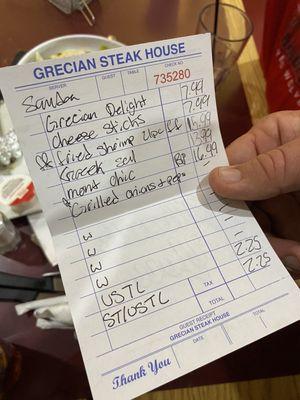 GRECIAN STEAK HOUSE
SERVER GUEST TABLE CHECK NO
735280
Sandra
Grecian Delight 7.99
Cheese sticks 7.99
fried shrimp 16.99
Greek 7.99
mont chic BP 16.99
Grilled onions + peps -
W -
W -
W -
W -
USTL 2.25
ST/USTL 2.25
TAX
TOTAL
GUEST RECEIPT
GRECIAN STEAK HOUSE
DATE TOTAL
Thank You